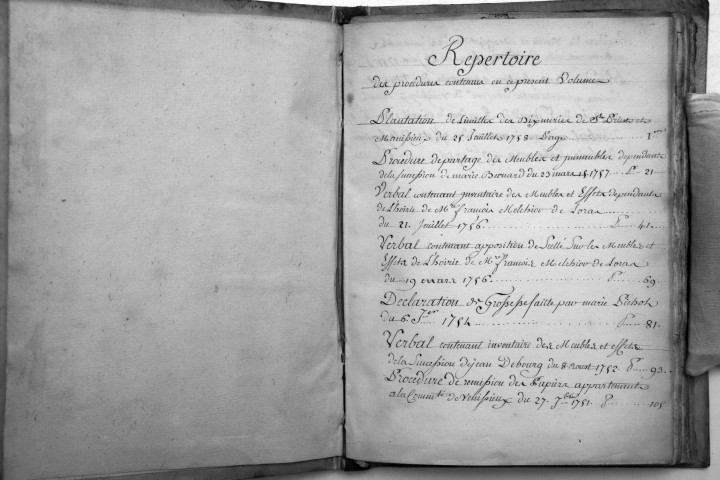 Repertoire
des procedures contenues en ce present Volume
Plantation de Limittes des Dixmeries de St Priest et
Manissieux du 25 Juillet 1758 Page 1ere
Procedure de partage des Meubles et immeubles dependants
de la sucession de marie Brouard du 23 mars 1757 P. 21
Verbal contenant inventaire des Meubles et Effets dependants
de L'hoirie de Mre françois Melchior de Loras
du 21. Juillet 1756 P. 41.
Verbal contenant apposition de Scellé Sur les Meubles et
Effets de L'hoirie de Mre françois Melchior de Loras
du 19 mars 1756 P. 69.
Declaration de Grossesse faitte par marie Pichot
du 6. 1754 P. 81.
Verbal contenant inventaire des Meubles et effets
de la Sucession de jean Debourg du 8 aoust 1753 P. 93.
Procedure de remission des Papiers appartenants
a la Commté de Venissieux du 27. 7bre 1751. P. 105